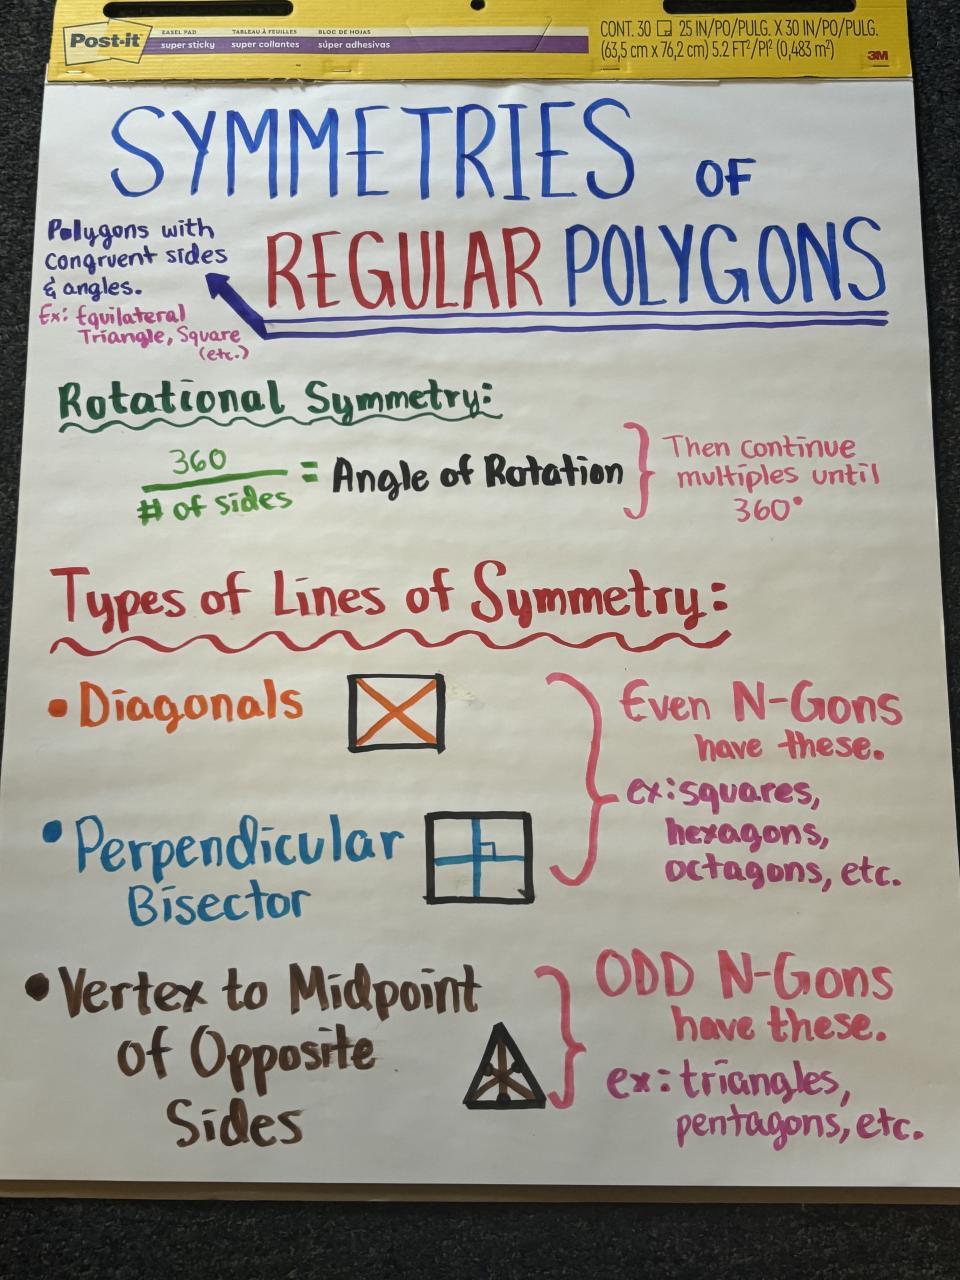 Post-it
EASEL PAD
super sticky
TABLEAU À FEUILLES
super collantes
BLOC DE HOJAS
súper adhesivas
CONT. 30 25 IN/PO/PULG. X 30 IN/PO/PULG.
(63,5 cm x 76,2 cm) 5.2 FT²/PI² (0,483 m²)
3M
SYMMETRIES OF
REGULAR POLYGONS
Polygons with
congruent sides
& angles.
Ex: Equilateral
Triangle, Square
(etc.)
Rotational Symmetry:
360
# of sides
= Angle of Rotation
Then continue
multiples until
360°
Types of Lines of Symmetry:
• Diagonals
Even N-Gons
have these.
ex: squares,
hexagons,
octagons, etc.
• Perpendicular
Bisector
• Vertex to Midpoint
of Opposite
Sides
ODD N-Gons
have these.
ex: triangles,
pentagons, etc.